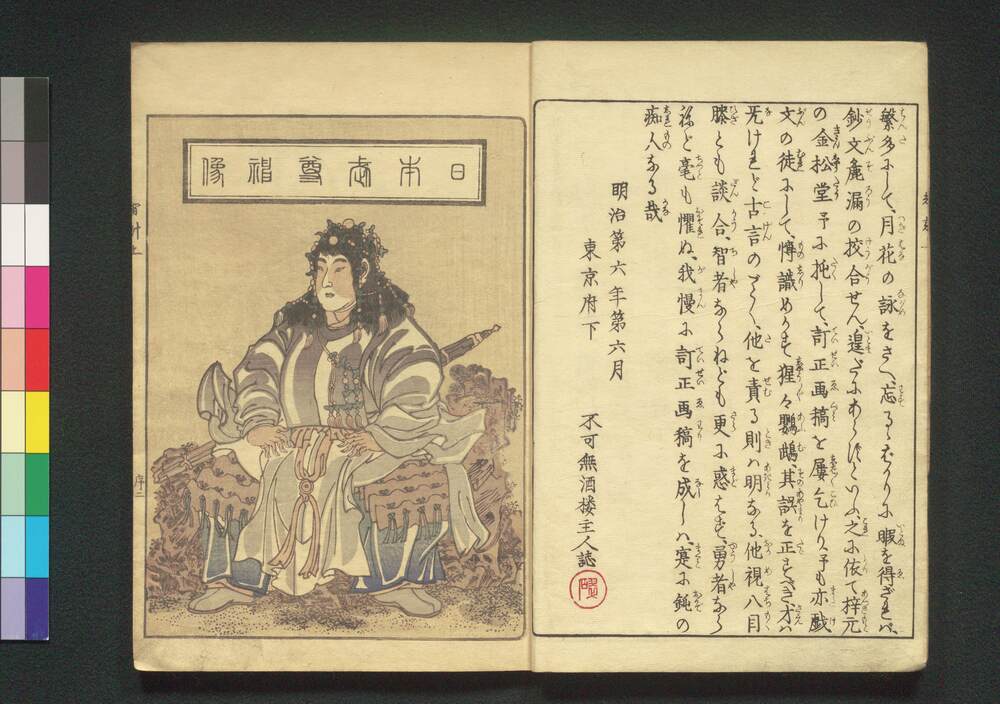 繁多にして、月花の詠をさへ、忘るゝばかりに暇を得ざれバ、
鈔文麁漏の挍合せん、遑だにあらずといふ、之に依て梓元
の金松堂予に托して、訂正画稿を屡乞けり予も亦戯
文の徒にして、博識めかせど猩々鸚鵡、其誤を正すべき才ハ
无けれど古言のごとく、他を責る則ハ明なる、他視八目
膝とも談合、智者ならねども更に惑はず、勇者なら
ねど毫も懼ぬ、我慢に訂正画稿を成しハ、寔に鈍の
痴人なる哉
明治第六年第六月
東京府下　不可無酒楼主人誌
日本武尊神像
序二